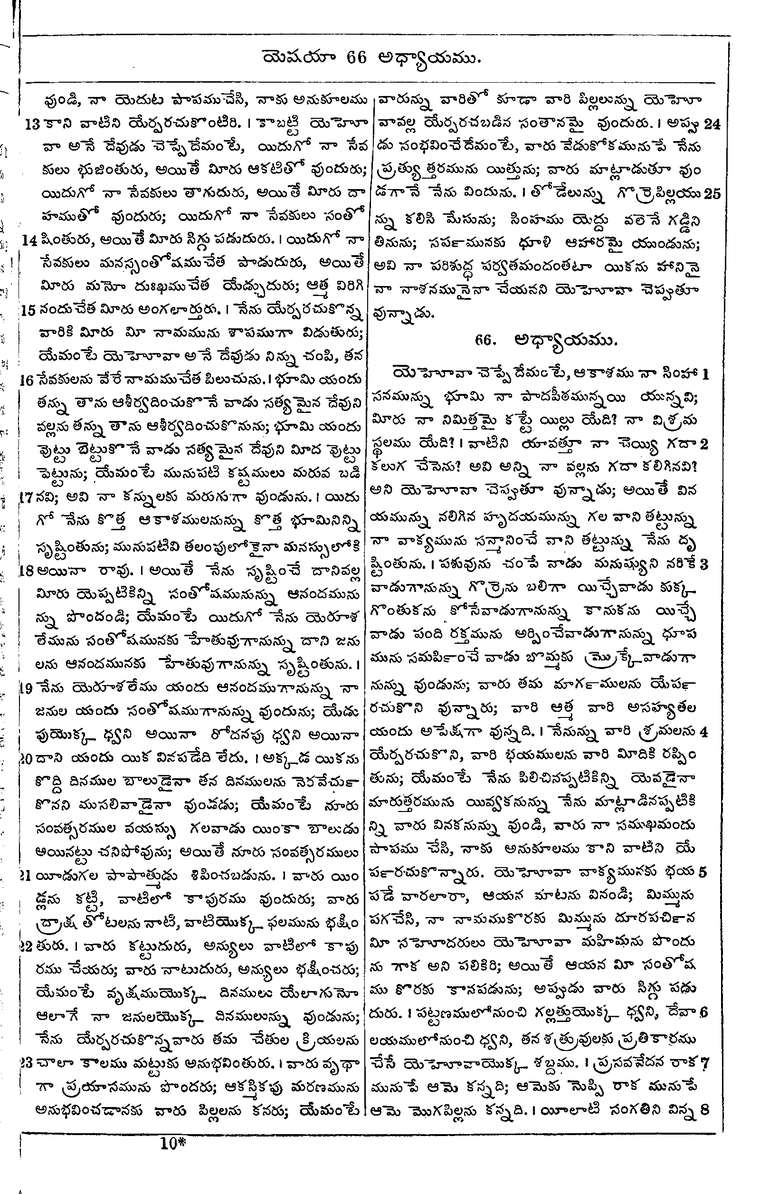 యెషయా 66 అధ్యాయము.
వుండి, నా యెదుట పాపముచేసి, నాకు అనుకూలము
13 కాని వాటిని యేర్పరచుకొంటిరి. । కాబట్టి యెహో
వా అనే దేవుడు చెప్పేదేమంటే, యిదుగో నా సేవ
కులు భుజింతురు, అయితే మీరు ఆకటితో వుందురు;
యిదుగో నా సేవకులు తాగుదురు, అయితే మీరు దా
హముతో వుందురు; యిదుగో నా సేవకులు సంతో
14 షింతురు, అయితే మీరు సిగ్గు పడుదురు. । యిదుగో నా
సేవకులు మనస్సంతోషముచేత పాడుదురు, అయితే
మీరు మనో దుఃఖముచేత యేడ్చుదురు; ఆత్మ విరిగి
15 నందుచేత మీరు అంగలార్తురు. । నేను యేర్పరచుకొన్న
వారికి మీరు మీ నామమును శాపముగా విడుతురు;
యేమంటే యెహోవా అనే దేవుడు నిన్ను చంపి, తన
16 సేవకులను వేరే నామముచేత పిలుచును. । భూమి యందు
తన్ను తాను ఆశీర్వదించుకొనే వాడు సత్యమైన దేవుని
వల్లను తన్ను తాను ఆశీర్వదించుకొనును; భూమి యందు
వొట్టు బెట్టుకొనే వాడు సత్యమైన దేవుని మీద వొట్టు
పెట్టును; యేమంటే మునుపటి కష్టములు మరువ బడి
17 నవి; అవి నా కన్నులకు మరుగుగా వుండును. । యిదు
గో నేను కొత్త ఆకాశములనున్ను కొత్త భూమినిన్ని
సృష్టింతును; మునుపటివి తలంపులోకైనా మనస్సులోకి
18 అయినా రావు. । అయితే నేను సృష్టించే దానివల్ల
మీరు యెప్పటికిన్ని సంతోషమునున్ను ఆనందమును
న్ను పొందండి; యేమంటే యిదుగో నేను యెరూశ
లేమును సంతోషమునకు హేతువుగానున్ను దాని జను
లను ఆనందమునకు హేతువుగానున్ను సృష్టింతును. ।
19 నేను యెరూశలేము యందు ఆనందముగానున్ను నా
జనుల యందు సంతోషముగానున్ను వుందును; యేడు
పుయొక్క ధ్వని అయినా రోదనపు ధ్వని అయినా
20 దాని యందు యిక వినపడేది లేదు. । అక్కడ యికను
కొద్ది దినముల బాలుడైనా తన దినములను నెరవేర్చు
కొనని ముసలివాడైనా వుండడు; యేమంటే నూరు
సంవత్సరముల వయస్సు గలవాడు యింకా బాలుడు
అయినట్టు చనిపోవును; అయితే నూరు సంవత్సరములు
21 యీడుగల పాపాత్ముడు శపించబడును. । వారు యిం
డ్లను కట్టి, వాటిలో కాపురము వుందురు; వారు
ద్రాక్ష తోటలను నాటి, వాటియొక్క ఫలమును భక్షిం
22 తురు. । వారు కట్టుదురు, అన్యులు వాటిలో కాపు
రము చేయరు; వారు నాటుదురు, అన్యులు భక్షించరు;
యేమంటే వృక్షముయొక్క దినములు యేలాగునో
ఆలాగే నా జనులయొక్క దినములున్ను వుండును;
నేను యేర్పరచుకొన్నవారు తమ చేతుల క్రియలను
23 చాలా కాలము మట్టుకు అనుభవింతురు. । వారు వృథా
గా ప్రయాసమును పొందరు; ఆకస్మికపు మరణమును
అనుభవించడానకు వారు పిల్లలను కనరు; యేమంటే
వారున్ను వారితో కూడా వారి పిల్లలున్ను యెహో
వావల్ల యేర్పరచబడిన సంతానమై వుందురు. । అప్పు 24
డు సంభవించేదేమంటే, వారు వేడుకోకమునుపే నేను
ప్రత్యుత్తరమును యిత్తును; వారు మాట్లాడుతూ వుం
డగానే నేను విందును. । తోడేలున్ను గొర్రెపిల్లయు 25
న్ను కలిసి మేసును; సింహము యెద్దు వలెనే గడ్డిని
తినును; సర్పమునకు ధూళి ఆహారమై యుండును;
అవి నా పరిశుద్ధ పర్వతమందంతటా యికను హానినై
నా నాశనమునైనా చేయనని యెహోవా చెప్పుతూ
వున్నాడు.
66. అధ్యాయము.
యెహోవా చెప్పేదేమంటే, ఆకాశము నా సింహా 1
సనమున్ను భూమి నా పాదపీఠమున్నయి యున్నవి;
మీరు నా నిమిత్తమై కట్టే యిల్లు యేది? నా విశ్రమ
స్థలము యేది? । వాటిని యావత్తూ నా చెయ్యి గదా 2
కలుగ చేసెను? అవి అన్ని నా వల్లను గదా కలిగినవి?
అని యెహోవా చెప్పుతూ వున్నాడు; అయితే విన
యమున్ను నలిగిన హృదయమున్ను గల వాని తట్టున్ను
నా వాక్యమును సన్మానించే వాని తట్టున్ను నేను దృ
ష్టింతును. । పశువును చంపే వాడు మనుష్యుని నరికే 3
వాడుగానున్ను గొర్రెను బలిగా యిచ్చేవాడు కుక్క
గొంతుకను కోసేవాడుగానున్ను కానుకను యిచ్చే
వాడు పంది రక్తమును అర్పించేవాడుగానున్ను ధూప
మును సమర్పించే వాడు బొమ్మకు మ్రొక్కేవాడుగా
నున్ను వుండును; వారు తమ మార్గములను యేర్ప
రచుకొని వున్నారు; వారి ఆత్మ వారి అసహ్యతల
యందు అపేక్షగా వున్నది. । నేనున్ను వారి శ్రమలను 4
యేర్పరచుకొని, వారి భయములను వారి మీదికి రప్పిం
తును; యేమంటే నేను పిలిచినప్పటికిన్ని యెవడైనా
మారుత్తరమును యివ్వకనున్ను నేను మాట్లాడినప్పటికి
న్ని వారు వినకనున్ను వుండి, వారు నా సముఖమందు
పాపము చేసి, నాకు అనుకూలము కాని వాటిని యే
ర్పరచుకొన్నారు. యెహోవా వాక్యమునకు భయ 5
పడే వారలారా, ఆయన మాటను వినండి; మిమ్మును
పగచేసి, నా నామముకొరకు మిమ్మును దూరపర్చిన
మీ సహోదరులు యెహోవా మహిమను పొందు
ను గాక అని పలికిరి; అయితే ఆయన మీ సంతోష
ము కొరకు కానపడును; అప్పుడు వారు సిగ్గు పడు
దురు. । పట్టణములోనుంచి గల్లత్తుయొక్క ధ్వని, దేవా 6
లయములోనుంచి ధ్వని, తన శత్రువులకు ప్రతికారము
చేసే యెహోవాయొక్క శబ్దము. । ప్రసవవేదన రాక 7
మునుపే ఆమె కన్నది; ఆమెకు నొప్పి రాక మునుపే
ఆమె మొగపిల్లను కన్నది. । యీలాటి సంగతిని విన్న 8
10*